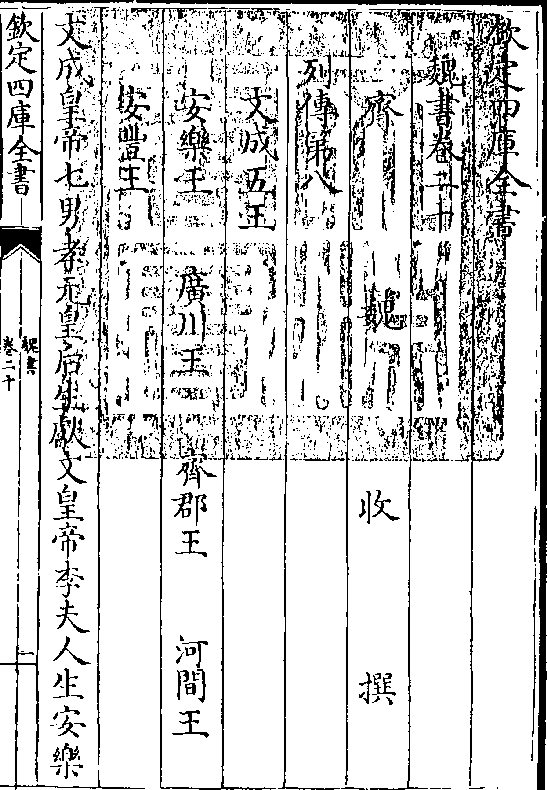 欽定四庫全書
魏書卷二十
齊 魏 收 撰
列傳第八
文成五王
安樂王 廣川王 齊郡王 河間王
安豐王
文成皇帝七男孝元皇后生獻文皇帝李夫人生安樂
欽定四庫全書
魏書
卷二十
一